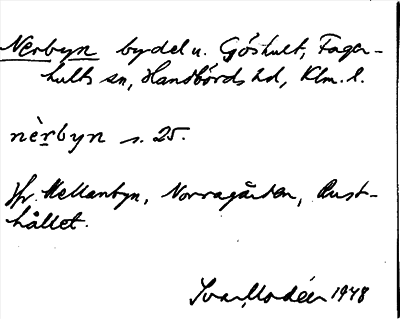 Nerbyn bydel u. Gjöshult, Fager-
hults sn, Handbörds hd, Klm. l.
nèrbyn s. 25.
Jfr. Mellanbyn, Norragården, Rust-
hållet.
Ivar Modéer 1948